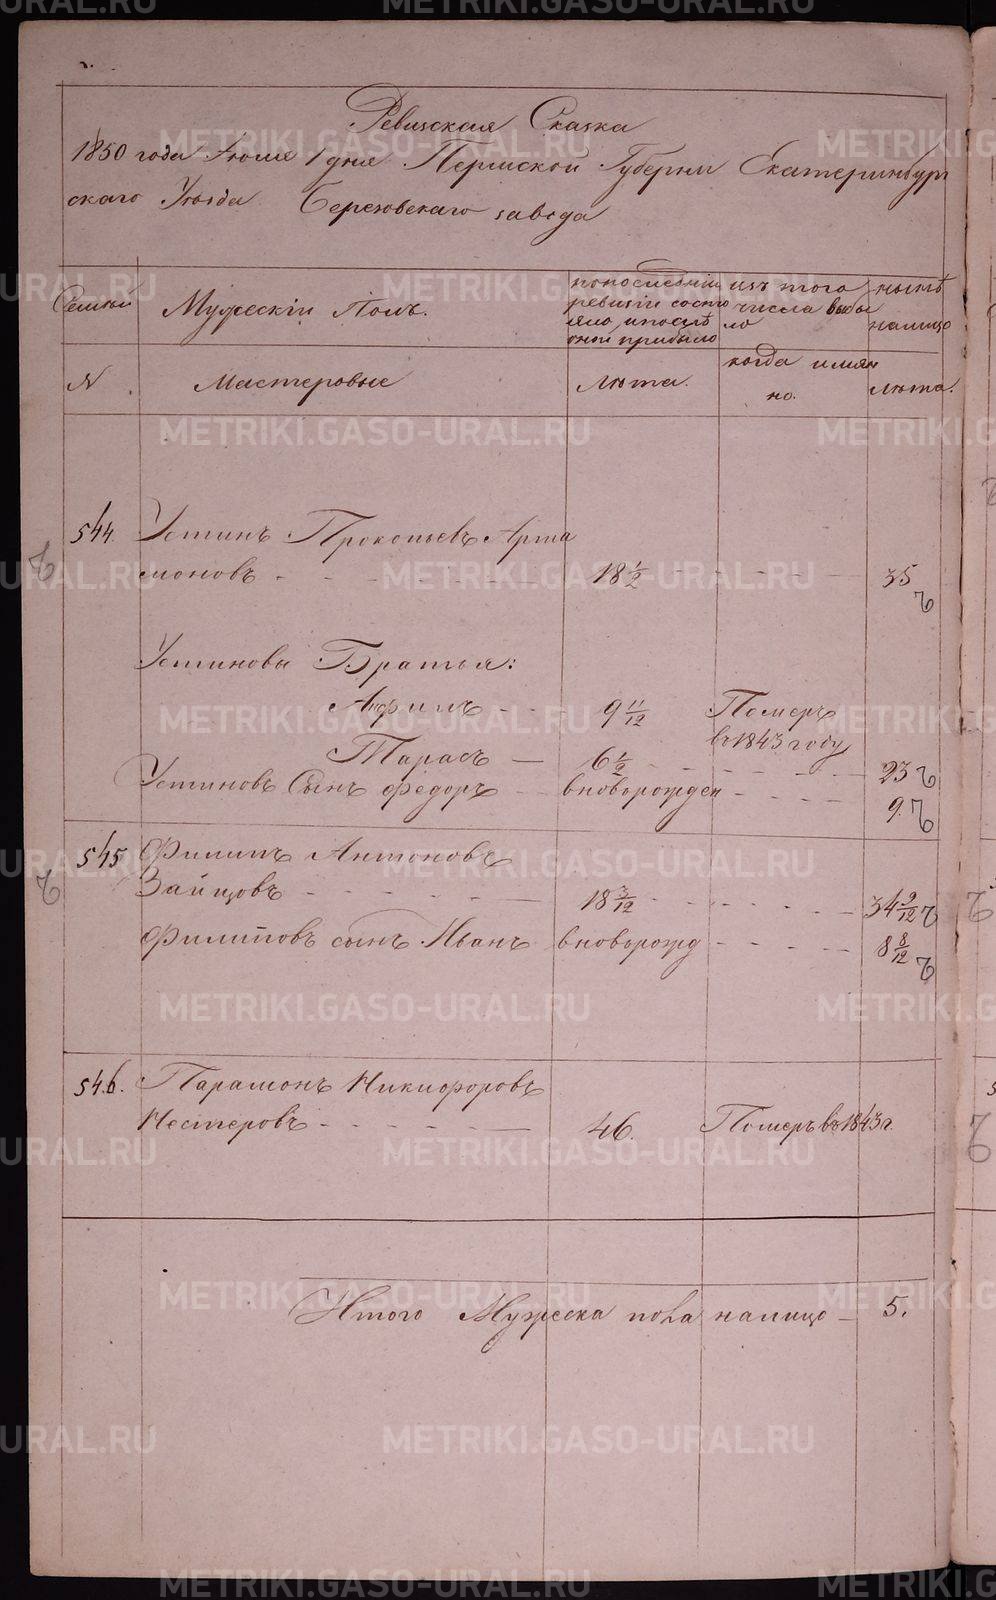 Ревизская Сказка
1850 года Іюня 1 дня Пермской Губерніи Екатеринбург
скаго Уѣзда Березовскаго завода
Семьи
Мужескій Полъ.
по последніи
ревизіи состо
яло и послѣ
оной прибыло
изъ того
числа выбы
ло
нынѣ
налицо
N
Мастеровые
Лѣта.
когда имян
но.
Лѣта.
544. Устинъ Прокопьевъ Арта
моновъ 18 1/2 35
Устиновы Братья:
Анфимъ 9 11/12 Померъ
въ 1843 году
Тарасъ 6 1/2 23
Устиновъ Сынъ Федоръ вноворожден 9.
545 Филипъ Антоновъ
Зайцовъ 18 3/12 34 9/12
Филиповъ сынъ Иванъ вноворожд 8 8/12
546. Парамонъ Никифоровъ
Нестеровъ 46. Померъ въ 1843 г.
Итого Мужеска пола налицо 5.
METRIKI.GASO-URAL.RU